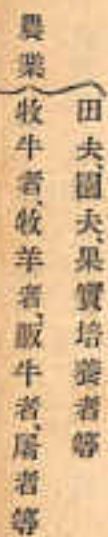 農業
田夫、園夫、果實培養者等
牧牛者、牧羊者、販牛者、屠者等